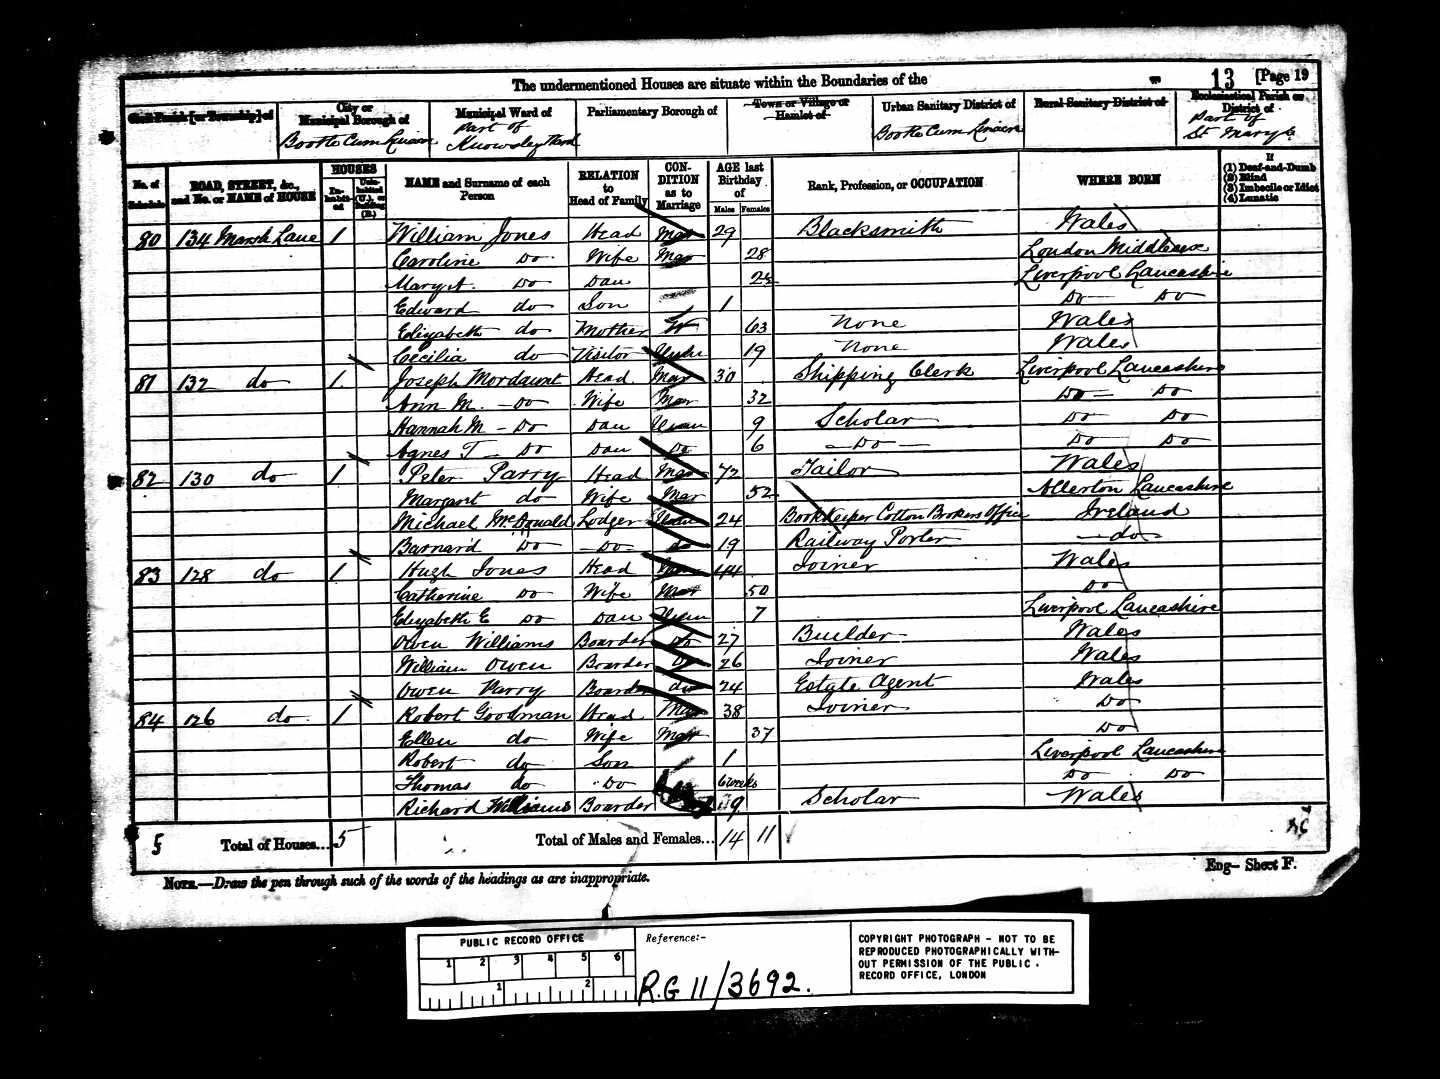 The undermentioned Houses are situate within the Boundaries of the 13 [Page 19
Civil Parish [or Township] of City or Municipal Borough of Municipal Ward of Parliamentary Borough of Town or Village or Hamlet of Urban Sanitary District of Rural Sanitary District of Ecclesiastical Parish or District of
Bootle Cum Linacre Part of Knowsley Ward Bootle Cum Linacre Part of St Mary's
No. of Schedule ROAD, STREET, &c., and No. or NAME of HOUSE HOUSES Inhabited Uninhabited (U.), or Building (B.) NAME and Surname of each Person RELATION to Head of Family CONDITION as to Marriage AGE last Birthday of Males Females Rank, Profession, or OCCUPATION WHERE BORN If (1) Deaf-and-Dumb (2) Blind (3) Imbecile or Idiot (4) Lunatic
80 134 Marsh Lane 1 William Jones Head Mar 29 Blacksmith Wales
Caroline Do Wife Mar 28 London Middlesex
Mary A. Do Dau Liverpool Lancashire
Edward do Son 1 Do Do
Elizabeth do Mother W 63 None Wales
Cecilia do Visitor Unm 19 None Wales
81 132 do 1 Joseph Mordaunt Head Mar 30 Shipping Clerk Liverpool Lancashire
Ann M. Do Wife Mar 32 Do Do
Hannah M Do Dau Unm 9 Scholar Do Do
Agnes T Do Dau Do 6 Do Do Do
82 130 do 1 Peter Parry Head Mar 72 Tailor Wales
Margaret do Wife Mar 52 Allerton Lancashire
Michael McDonald Lodger Unm 24 Bookkeeper Cotton Brokers Office Ireland
Barnard Do Do do 19 Railway Porter do
83 128 do 1 Hugh Jones Head Mar 44 Joiner Wales
Catherine Do Wife Mar 50 Do
Elizabeth E Do Dau Unm 7 Liverpool Lancashire
Owen Williams Boarder Do 27 Builder Wales
William Owen Boarder Do 26 Joiner Wales
Owen Parry Boarder do 24 Estate Agent Wales
84 126 do 1 Robert Goodman Head Mar 38 Joiner Do
Ellen do Wife Mar 37 Do
Robert do Son 1 Liverpool Lancashire
Thomas do Do 6 weeks Do Do
Richard Williams Boarder 19 Scholar Wales
5 Total of Houses... 5 Total of Males and Females... 14 11
NOTE.—Draw the pen through such of the words of the headings as are inappropriate.
Eng— Sheet F.
PUBLIC RECORD OFFICE
1 2 3 4 5 6
1 2
Reference:-
R.G 11/3692.
COPYRIGHT PHOTOGRAPH - NOT TO BE
REPRODUCED PHOTOGRAPHICALLY WITH-
OUT PERMISSION OF THE PUBLIC
RECORD OFFICE, LONDON